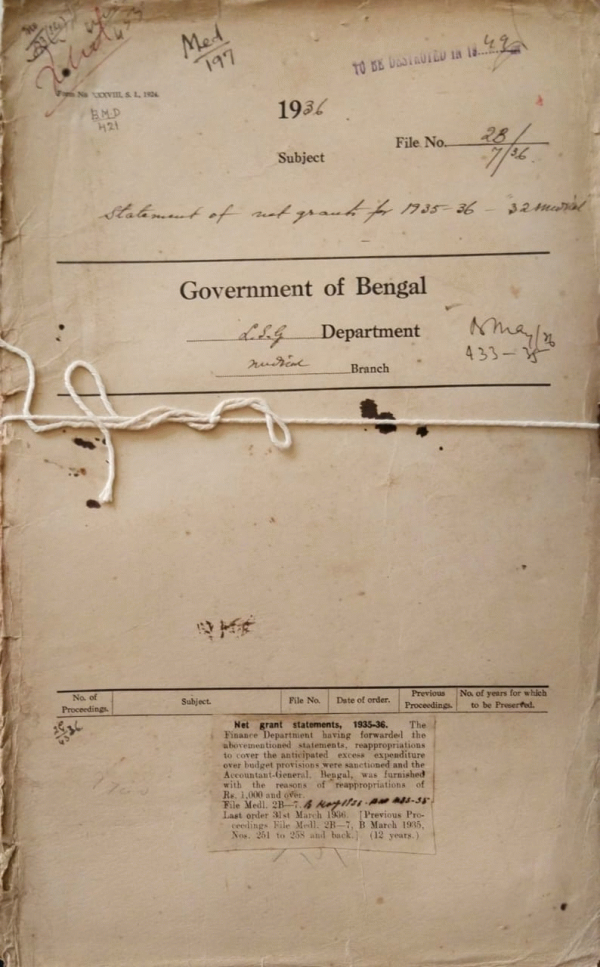 Med
197
TO BE DESTROYED IN 19 49
Form No. XXXVIII, S. I., 1924.
B.M.D
421
1936
File No. 2B/
7/36
Subject
Statement of net grants for 1935-36 - 32 Medical
Government of Bengal
L.S.G Department
Medical Branch
B May/36
433-35
No. of Proceedings.
Subject.
File No.
Date of order.
Previous Proceedings.
No. of years for which to be Preserved.
Net grant statements, 1935-36. The
Finance Department having forwarded the
abovementioned statements, reappropriations
to cover the anticipated excess expenditure
over budget provisions were sanctioned and the
Accountant-General, Bengal, was furnished
with the reasons of reappropriations of
Rs. 1,000 and over.
File Medl. 2B—7, B May 1936. 433-35
Last order 31st March 1936. [Previous Pro-
ceedings File Medl. 2B—7, B March 1935,
Nos. 251 to 258 and back.] (12 years.)